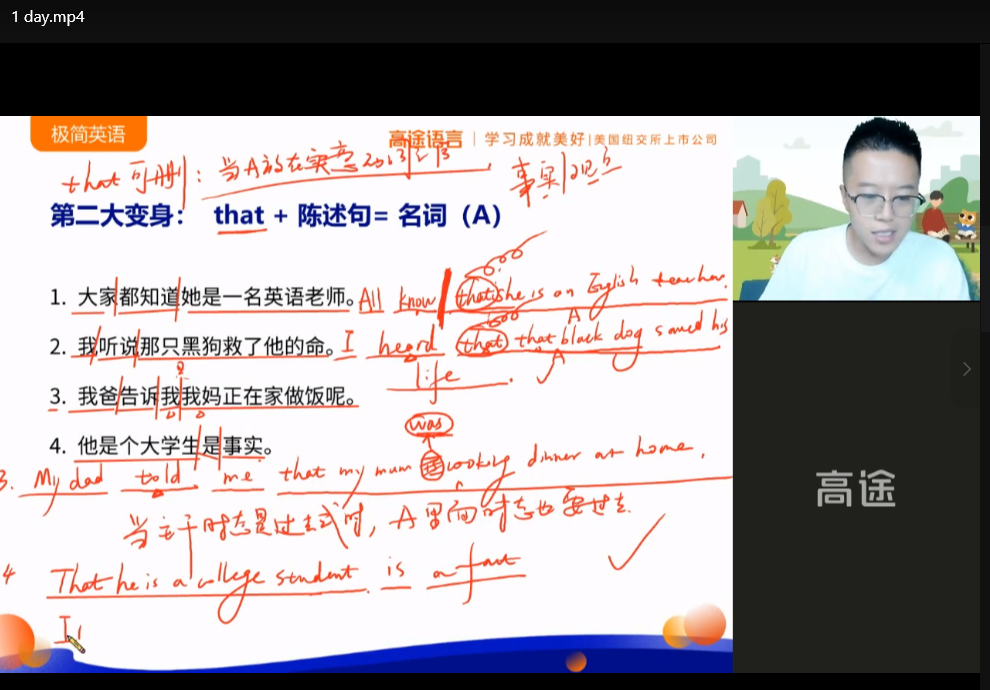 1 day.mp4
极简英语
高途语言 | 学习成就美好 | 美国纽交所上市公司
that 可删: 当A放在实意动词后
事实/观点
第二大变身: that + 陈述句= 名词(A)
1. 大家都知道她是一名英语老师。All know that she is an English teacher.
A
2. 我听说那只黑狗救了他的命。I heard that that black dog saved his
life.
A
3. 我爸告诉我我妈正在家做饭呢。
was
4. 他是个大学生是事实。
3. My dad told me that my mum cooking dinner at home.
当主干时态是过去式时, A里面时态也要过去.
4 That he is a college student is a fact
高途